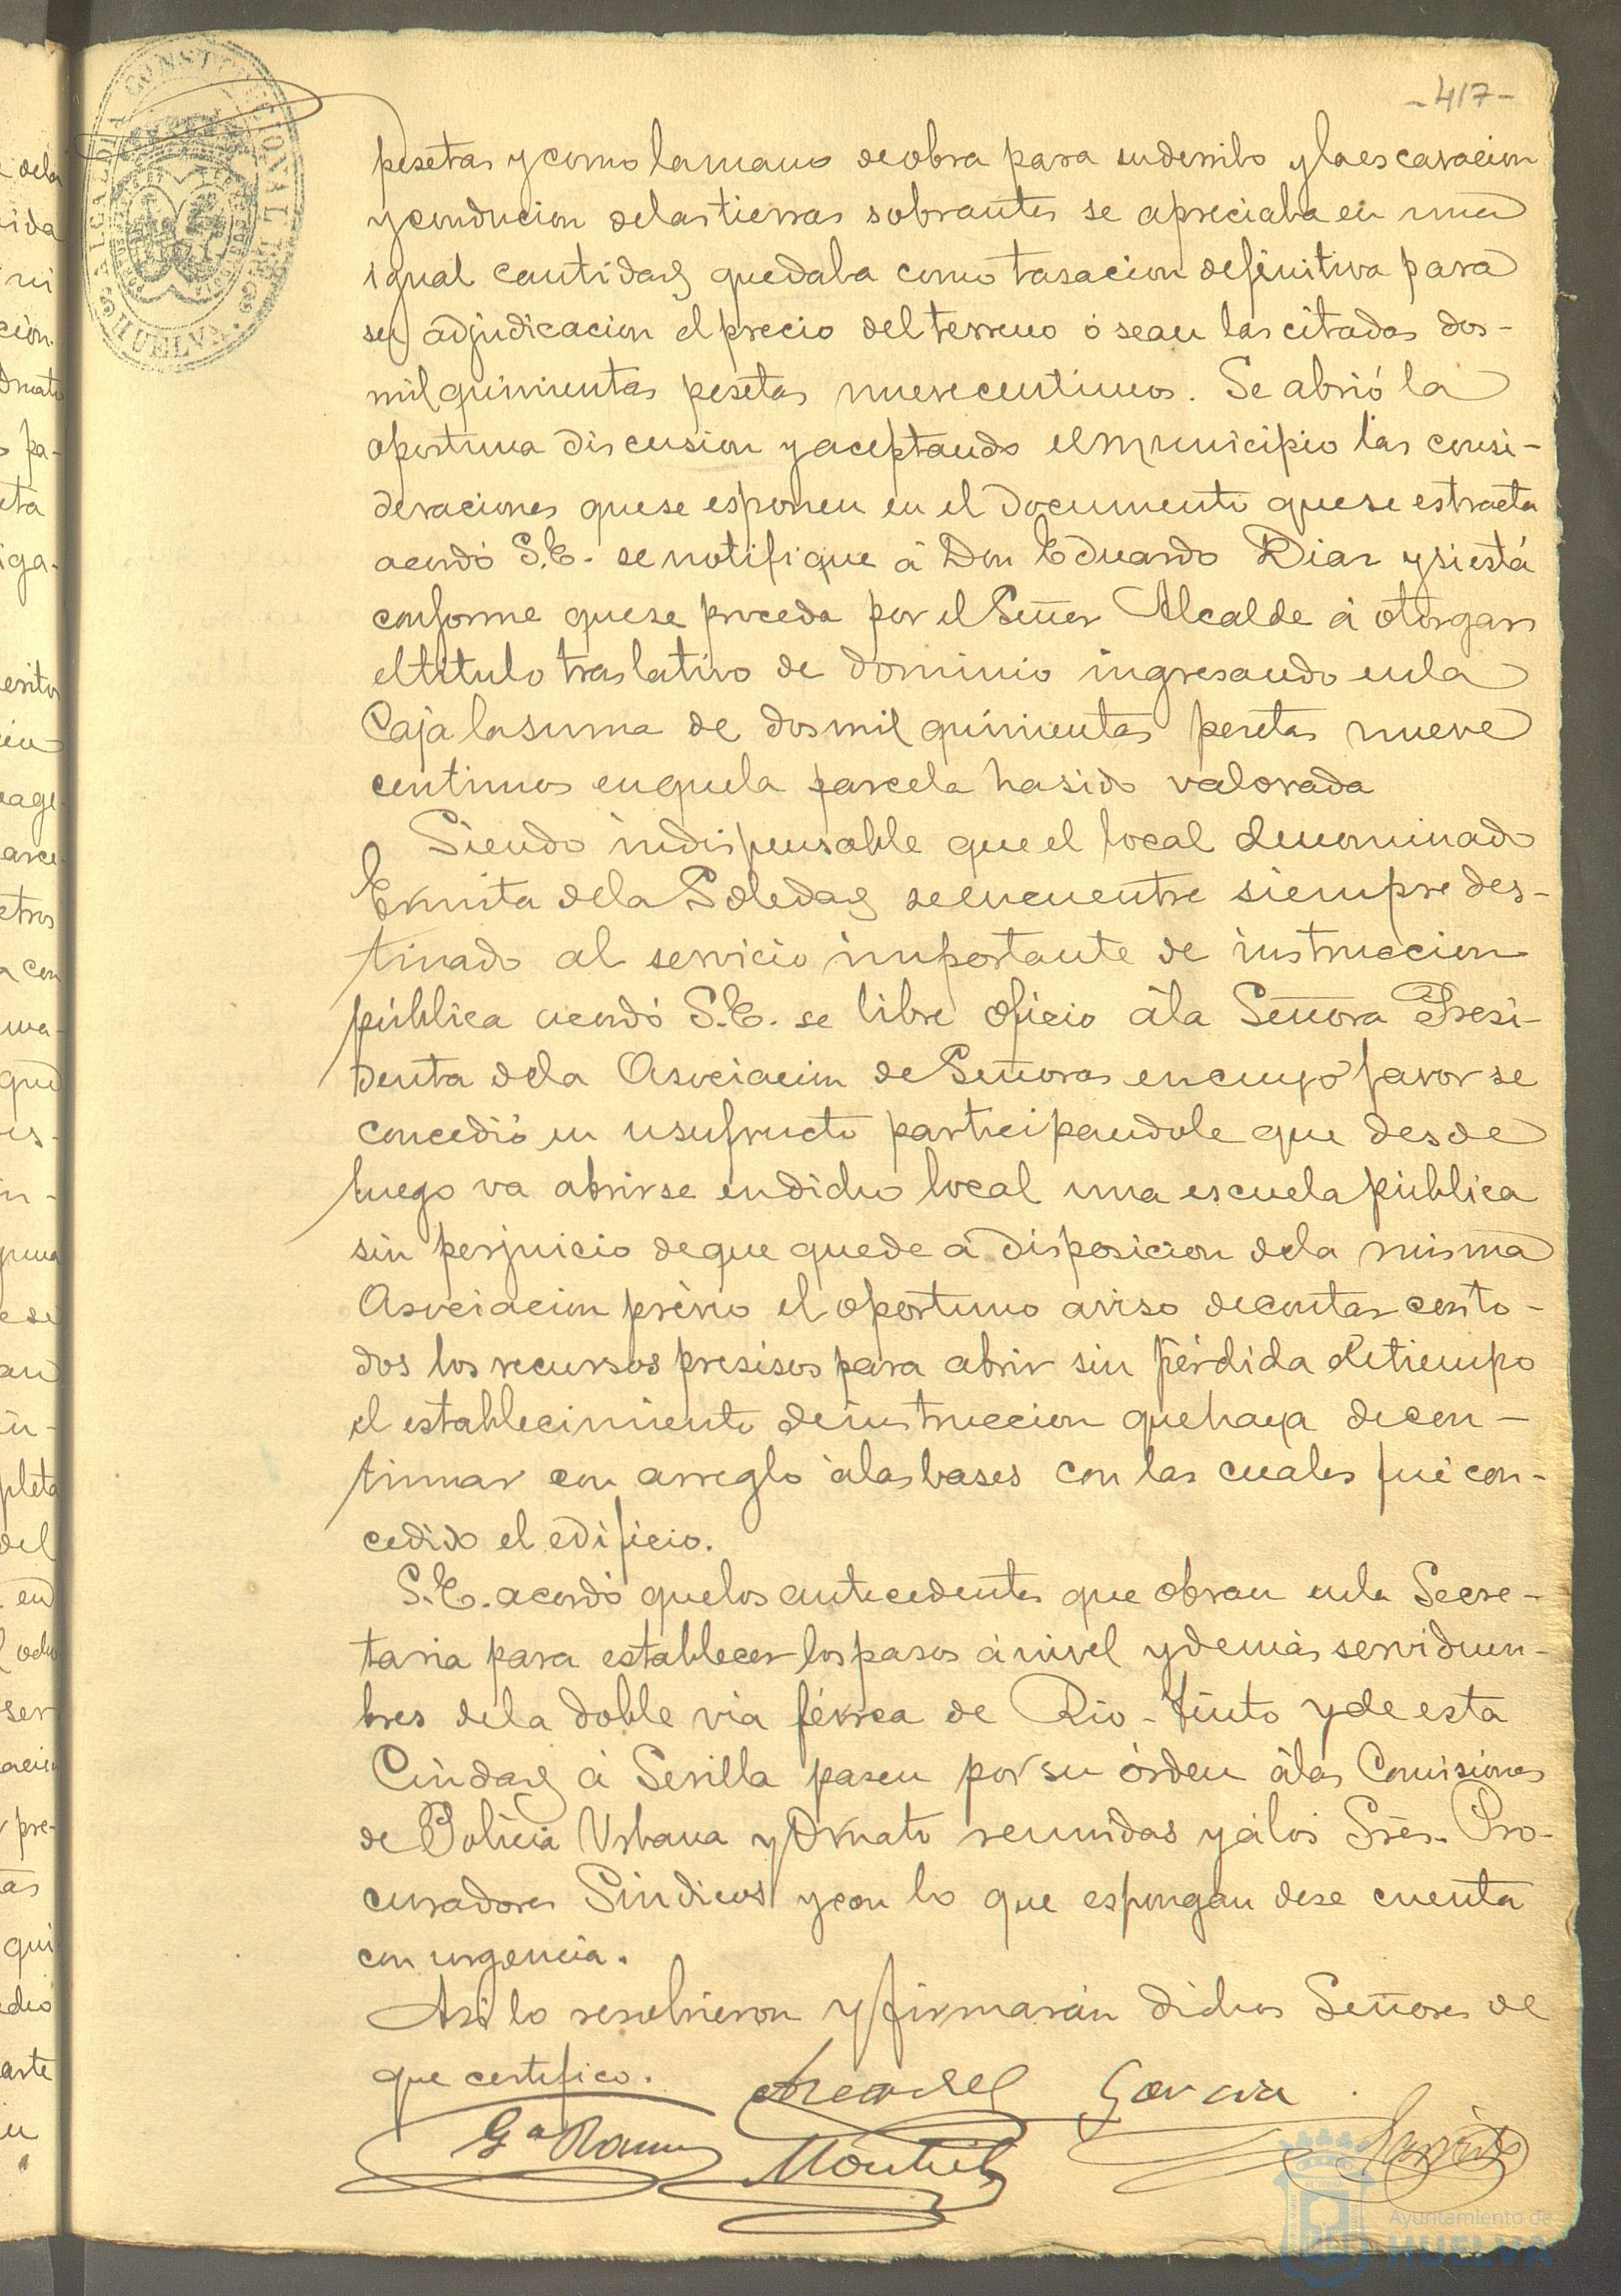 -417-
ALCALDIA CONSTITUCIONAL DE HUELVA
pesetas y como la mano de obra para su derribo y la escavacion
y conducion de las tierras sobrantes se apreciaba en una
igual cantidad quedaba como tasacion definitiva para
su adjudicacion el precio del terreno ó sean las citadas dos-
mil quinientas pesetas nueve centimos. Se abrió la
oportuna discusion y aceptando el Municipio las consi-
deraciones que se esponen en el documento que se estracta
acordó S.E. se notifique á Don Eduardo Diaz y si está
conforme que se proceda por el Señor Alcalde á otorgar
el titulo traslativo de dominio ingresando en la
Caja la suma de dos mil quinientas pesetas nueve
centimos en que la parcela ha sido valorada
Siendo indispensable que el local denominado
Ermita de la Soledad se encuentre siempre des-
tinado al servicio importante de instruccion
pública acordó S.E. se libre oficio á la Señora Presi-
denta de la Asociacion de Señoras en cuyo favor se
concedió en usufructo participandole que desde
luego va abrirse en dicho local una escuela pública
sin perjuicio de que quede á disposicion de la misma
Asociacion prévio el oportuno aviso de contar con to-
dos los recursos presisos para abrir sin pérdida de tiempo
el establecimiento de instruccion que haya de con-
tinuar con arreglo á las bases con las cuales fué con-
cedido el edificio.
S.E. acordó que los antecedentes que obran en la Secre-
taria para establecer los pasos á nivel y demás servidum-
bres de la doble via férrea de Rio-Tinto y de esta
Ciudad á Sevilla pasen por su órden á las Comisiones
de Policia Urbana y Ornato reunidas y á los Sres. Pro-
curadores Sindicos y con lo que espongan dese cuenta
con urgencia.
Asi lo resolvieron y firmarán dichos Señores de
que certifico.
Garcia
Gª Ramos
Montiel
Ayuntamiento de
HUELVA